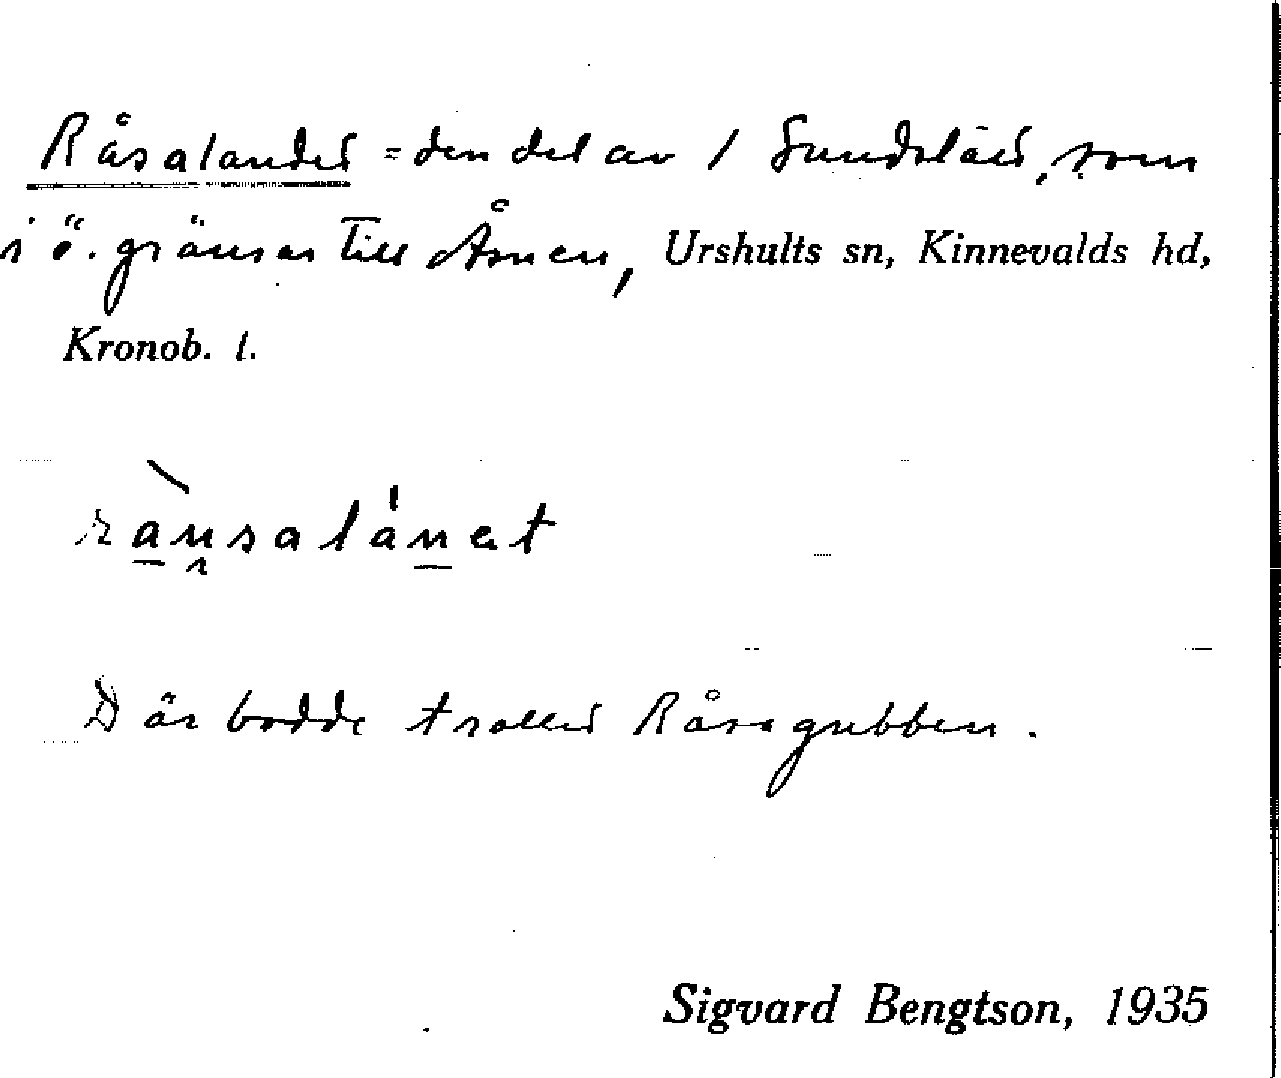 Råsalandet = den del av / Sundslätt, som
i ö. gränsar till Åsnen, Urshults sn, Kinnevalds hd,
Kronob. l.
Där bodde trollet Råsagubben.
Sigvard Bengtson, 1935